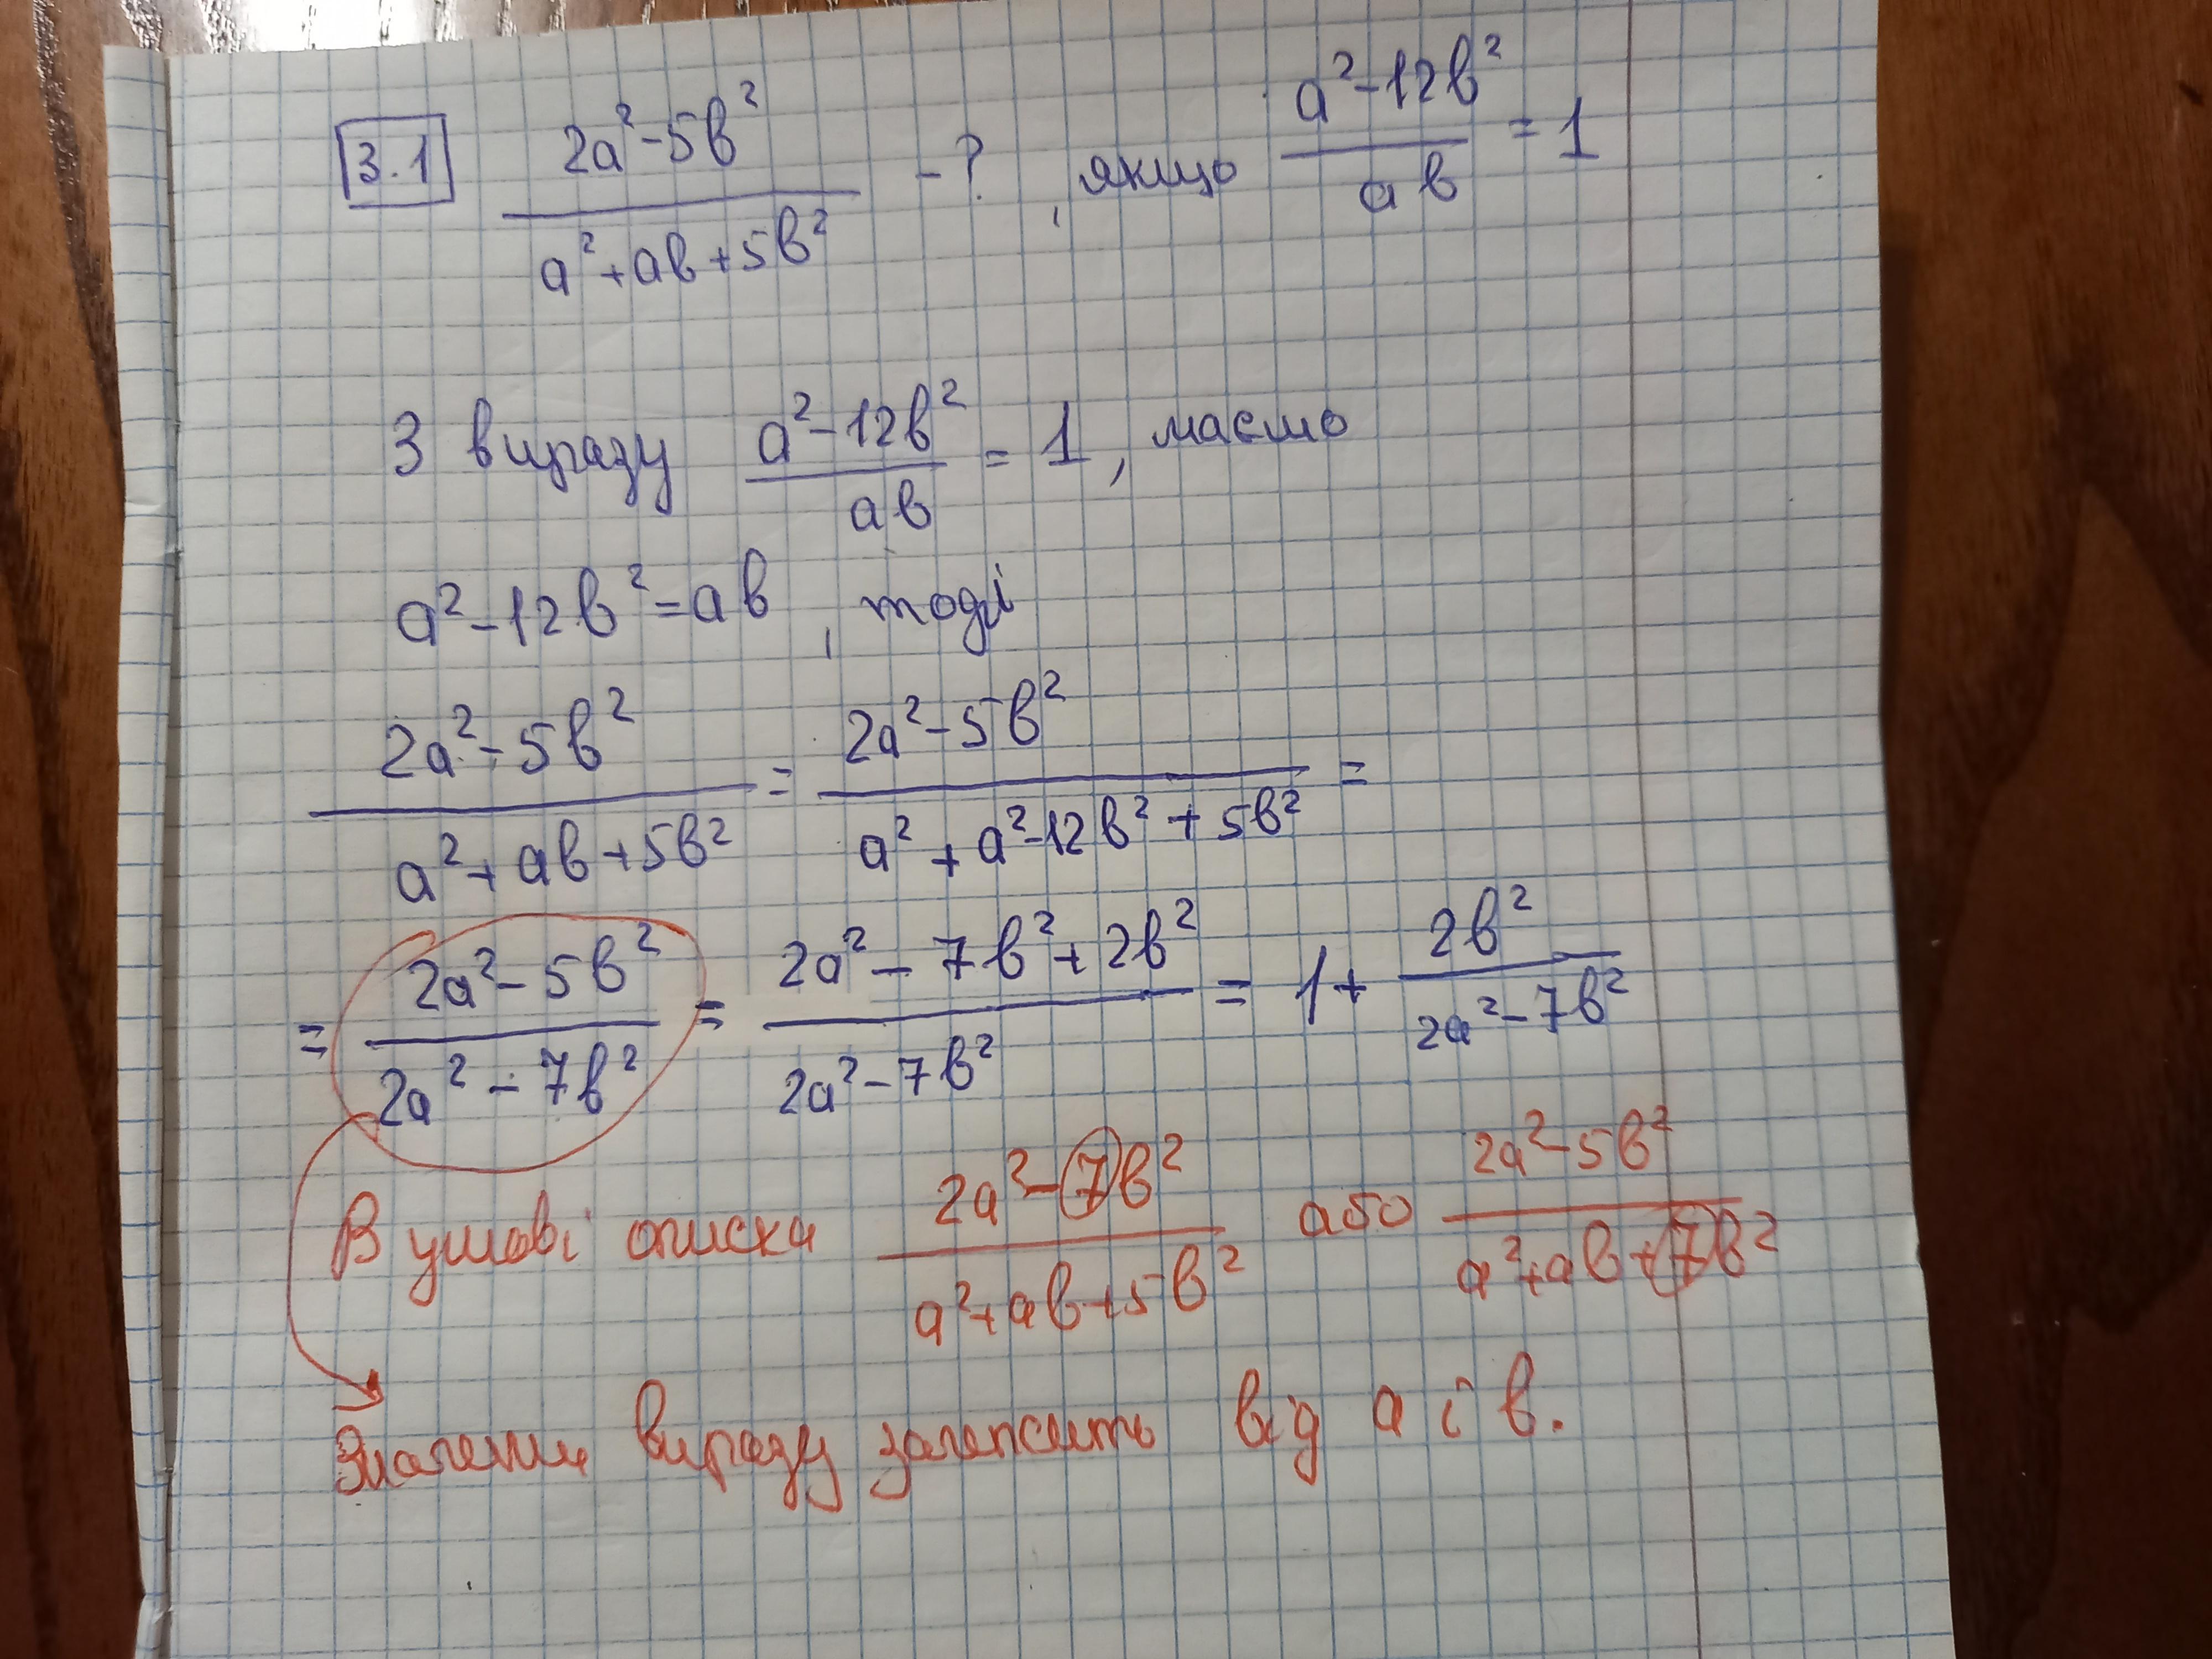 3.1 (2a²-5в²)/(a²+aв+5в²) - ? , якщо (a²-12в²)/(aв) = 1
З виразу (a²-12в²)/(aв) = 1, маємо
a²-12в²=aв, тоді
(2a²-5в²)/(a²+aв+5в²) = (2a²-5в²)/(a²+a²-12в²+5в²) =
= (2a²-5в²)/(2a²-7в²) = (2a²-7в²+2в²)/(2a²-7в²) = 1+ (2в²)/(2a²-7в²)
В умові описка (2a²-7в²)/(a²+aв+5в²) або (2a²-5в²)/(a²+aв+7в²)
Значення виразу залежить від a і в.